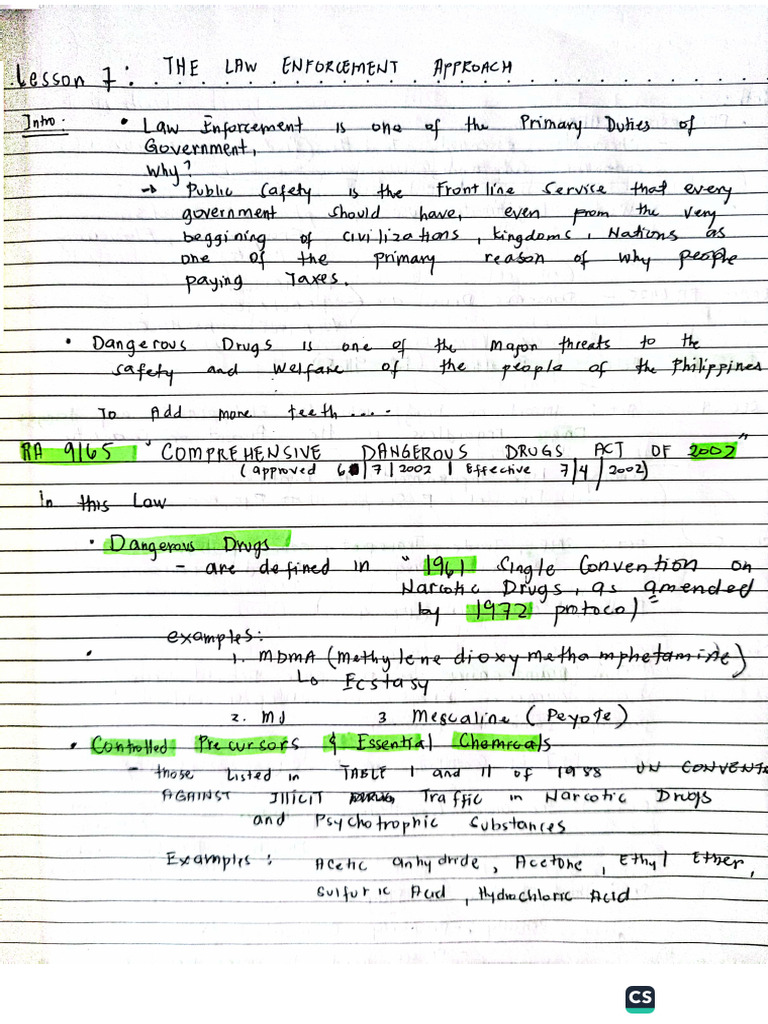 Lesson 7: THE LAW ENFORCEMENT APPROACH
Intro: • Law Enforcement is one of the Primary Duties of
Government,
Why?
→ Public Safety is the Frontline Service that every
government should have, even from the very
beggining of civilizations, kingdoms, Nations as
one of the primary reason of why people
paying Taxes.
• Dangerous Drugs is one of the major threats to the
safety and welfare of the people of the Philippines
To Add more teeth ....
RA 9165 "COMPREHENSIVE DANGEROUS DRUGS ACT OF 2002"
(approved 6/7/2002 | Effective 7/4/2002)
In this Law
• Dangerous Drugs
- are defined in "1961 Single Convention on
Narcotic Drugs, as amended
by 1972 protocol"
examples:
• 1. MDMA (Methylenedioxymethamphetamine)
↳ Ecstasy
2. MJ 3. Mescaline (Peyote)
• Controlled Precursors & Essential Chemicals
- those Listed in TABLE I and II of 1988 UN CONVENT
AGAINST Illicit Traffic in Narcotic Drugs
and Psychotrophic Substances
Examples: Acetic anhydride, Acetone, Ethyl Ether,
Sulfuric Acid, Hydrochloric Acid
CS